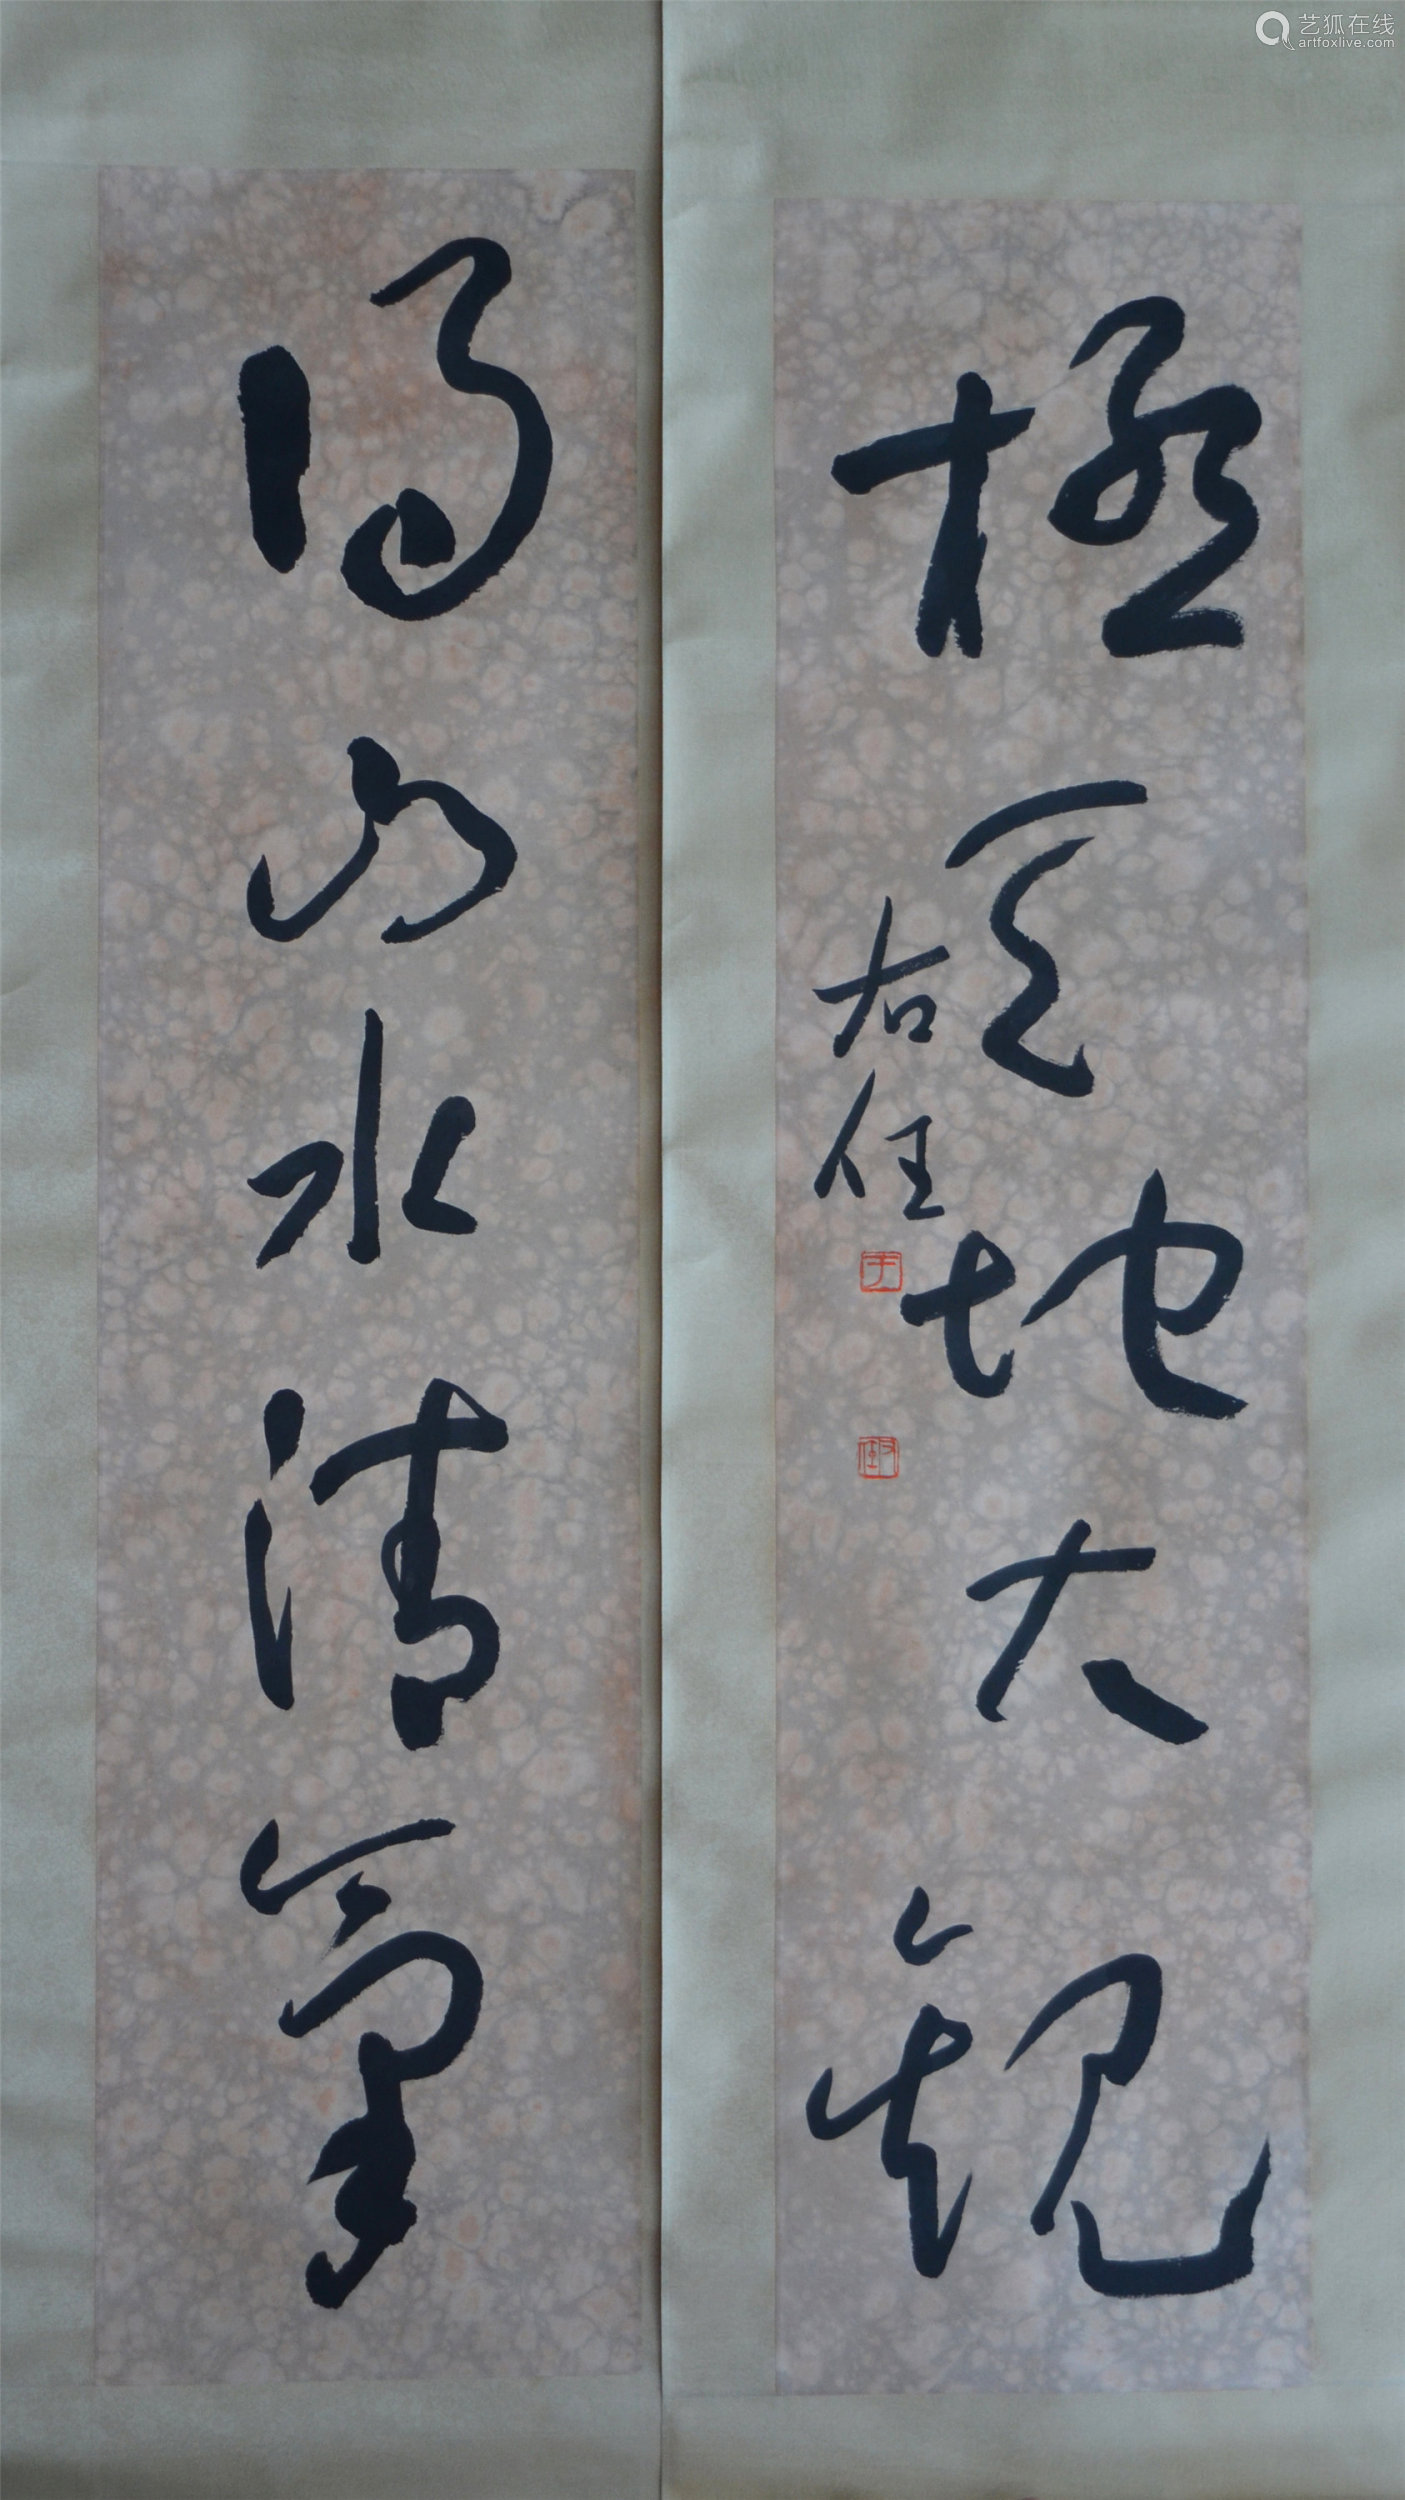 得山水清氣
極天地大觀
右任
艺狐在线
artfoxlive.com